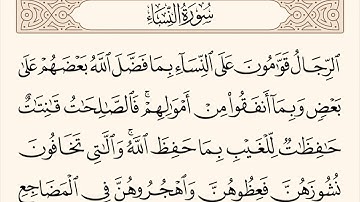 سُورَةُ النِّسَاءِ
الرِّجَالُ قَوَّامُونَ عَلَى النِّسَاءِ بِمَا فَضَّلَ اللَّهُ بَعْضَهُمْ عَلَىٰ
بَعْضٍ وَبِمَا أَنفَقُوا مِنْ أَمْوَالِهِمْ ۚ فَالصَّالِحَاتُ قَانِتَاتٌ
حَافِظَاتٌ لِّلْغَيْبِ بِمَا حَفِظَ اللَّهُ ۚ وَاللَّاتِي تَخَافُونَ
نُشُوزَهُنَّ فَعِظُوهُنَّ وَاهْجُرُوهُنَّ فِي الْمَضَاجِعِ